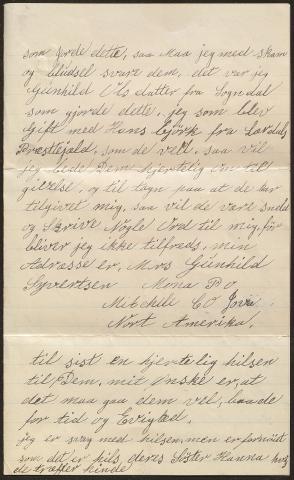 som jorde dette, saa Maa jeg med skam
og bludsel svare dem, det var jeg
Günhild Ols datter fra Sogndal
som gjorde dette, jeg som blev
Gift med Hans Gjørk fra Lardals
Præstejald, som de ved, saa vil
jeg bede Dem hjertelig om till
givelse, og til tægn paa at De har
tilgivet mig, saa vil de være sneld
og Skrive Nogle Ord til mig, før
bliver jeg ikke tilfreds, min
Adrasse er, Mrs Günhild
Syvertsen Mona P.O
Mitchele CO Iova
Nort Amerika,
til sist en hjertelig hilsen
til Dem, mit ønske er, at
det maa gaa dem vel, baade
for tid og Evigted,
jeg er svag med hilsen, men er fornøiet
som det er hils deres Søster Hanna hvis
de træffer hinde